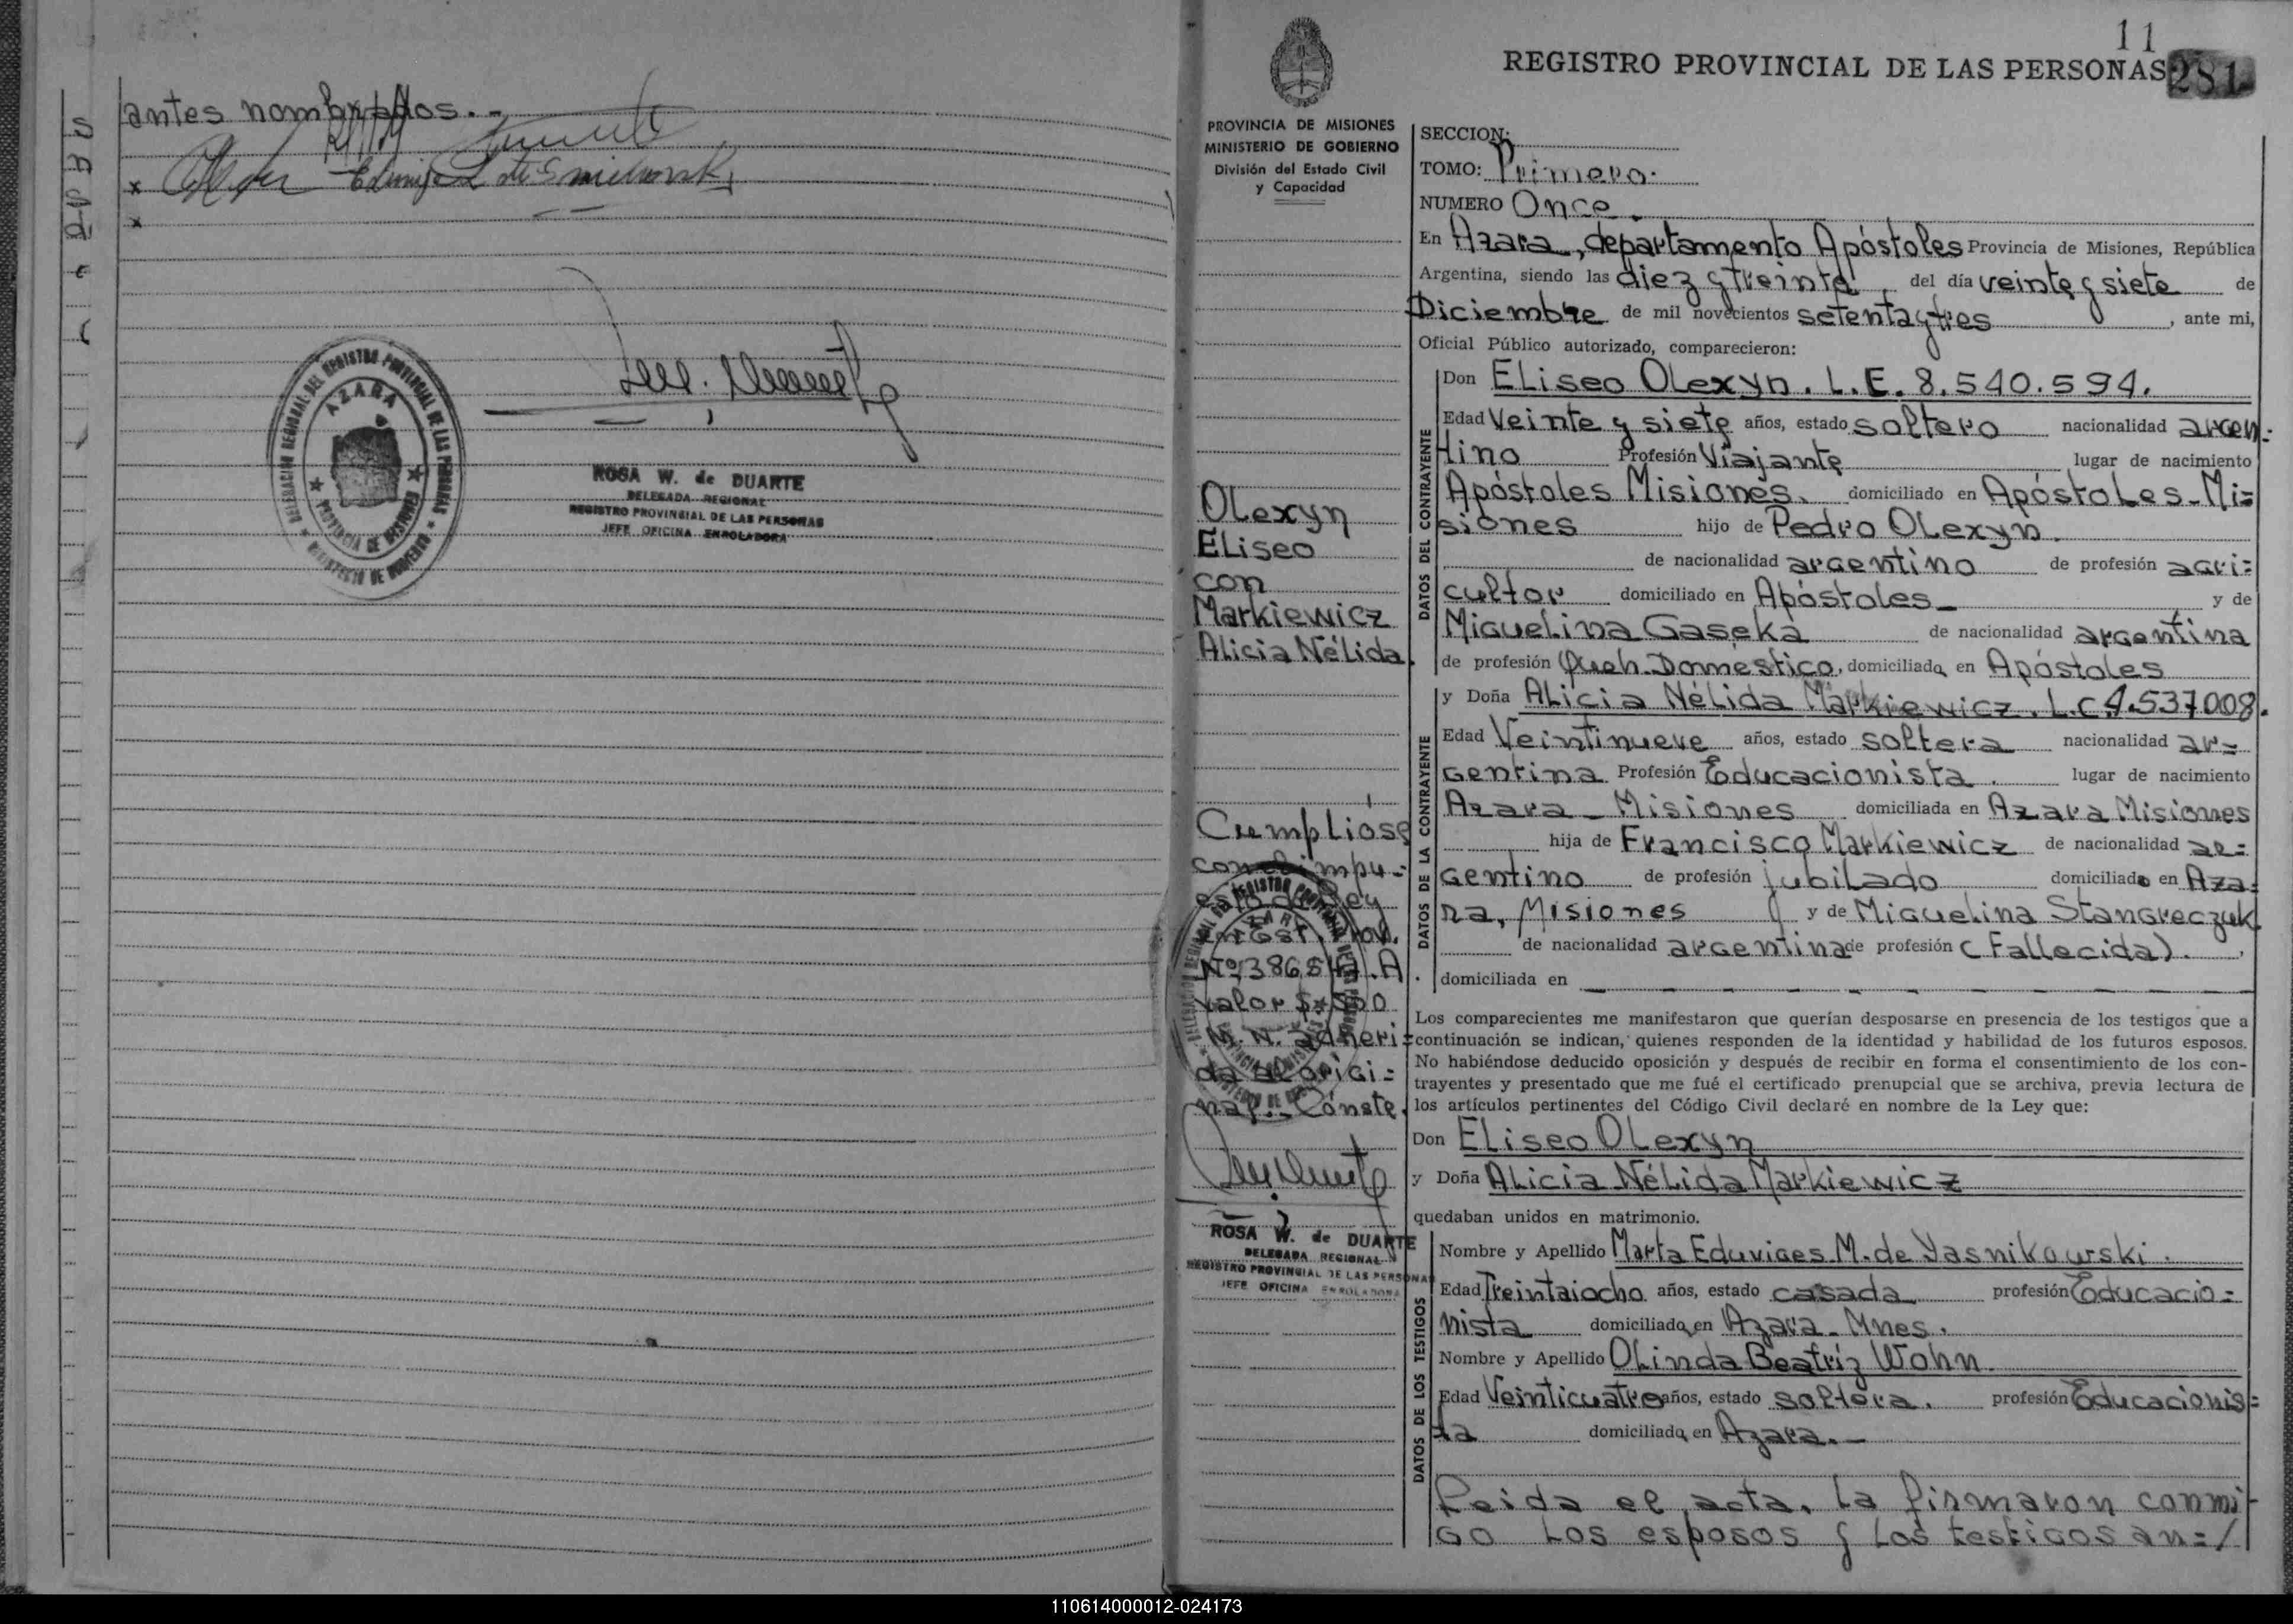 antes nombrados.-
AZARA
DELEGACION REGIONAL DEL REGISTRO PROVINCIAL DE LAS PERSONAS
PROVINCIA DE MISIONES
MINISTERIO DE GOBIERNO
ROSA W. de DUARTE
DELEGADA REGIONAL
REGISTRO PROVINCIAL DE LAS PERSONAS
JEFE OFICINA ENROLADORA
11
REGISTRO PROVINCIAL DE LAS PERSONAS
281
PROVINCIA DE MISIONES
MINISTERIO DE GOBIERNO
División del Estado Civil
y Capacidad
Olexyn
Eliseo
con
Markiewicz
Alicia Nélida.
Cumplióse
con el impu=
esto de Ley
en Est. Prov.
valor $ 500
M.N. adheri=
da al origi=
nal.- Conste.
ROSA W. de DUARTE
DELEGADA REGIONAL
REGISTRO PROVINCIAL DE LAS PERSONAS
JEFE OFICINA ENROLADORA
SECCION:
TOMO: Primero.
NUMERO Once.
En Azara, departamento Apóstoles Provincia de Misiones, República
Argentina, siendo las diez y treinta, del día veinte y siete de
Diciembre de mil novecientos setenta y tres, ante mi,
Oficial Público autorizado, comparecieron:
DATOS DEL CONTRAYENTE
Don Eliseo Olexyn. L.E. 8.540.594.
Edad Veinte y siete años, estado soltero nacionalidad argen=
tino Profesión Viajante lugar de nacimiento
Apóstoles Misiones. domiciliado en Apóstoles-Mi=
siones hijo de Pedro Olexyn.
de nacionalidad argentino de profesión agri=
cultor domiciliado en Apóstoles_ y de
Miguelina Gaseka de nacionalidad argentina
de profesión Queh. Doméstico, domiciliada en Apóstoles
DATOS DE LA CONTRAYENTE
y Doña Alicia Nélida Markiewicz. L.C. 4.537.008.
Edad Veintinueve años, estado soltera nacionalidad ar=
gentina Profesión Educacionista. lugar de nacimiento
Azara - Misiones domiciliada en Azara Misiones
hija de Francisco Markiewicz de nacionalidad ar=
gentino de profesión jubilado domiciliado en Aza=
ra, Misiones y de Miguelina Stangreczuk
de nacionalidad argentina de profesión (Fallecida).
domiciliada en
Los comparecientes me manifestaron que querían desposarse en presencia de los testigos que a
continuación se indican, quienes responden de la identidad y habilidad de los futuros esposos.
No habiéndose deducido oposición y después de recibir en forma el consentimiento de los con-
trayentes y presentado que me fué el certificado prenupcial que se archiva, previa lectura de
los artículos pertinentes del Código Civil declaré en nombre de la Ley que:
Don Eliseo Olexyn
y Doña Alicia Nélida Markiewicz
quedaban unidos en matrimonio.
DATOS DE LOS TESTIGOS
Nombre y Apellido Marta Eduviges M. de Yasnikowski.
Edad Treintaiocho años, estado casada profesión Educacio=
nista domiciliada en Azara - Mnes.
Nombre y Apellido Olinda Beatríz Wohn.
Edad Veinticuatro años, estado soltera. profesión Educacionis=
ta domiciliada en Azara.-
Leida el acta, la firmaron conmi-
go los esposos y los testigos an=/
110614000012-024173